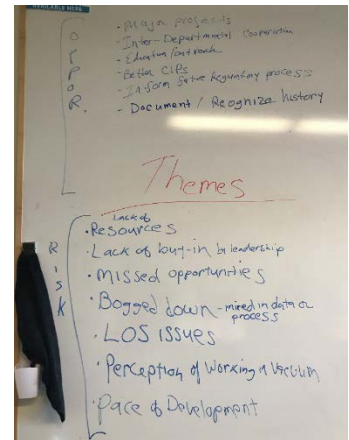 AVAILABLE HERE
OPPOR.
• Major projects
• Inter-Departmental Cooperation
• Education/outreach
• Better CIPs
• Inform future Regulatory process
• Document / Recognize history
Themes
RISK
Lack of
• Resources
• Lack of buy-in by leadership
• Missed opportunities
• Bogged down - mired in data or
process
• LOS issues
• Perception of Working a Vacuum
• Pace of Development